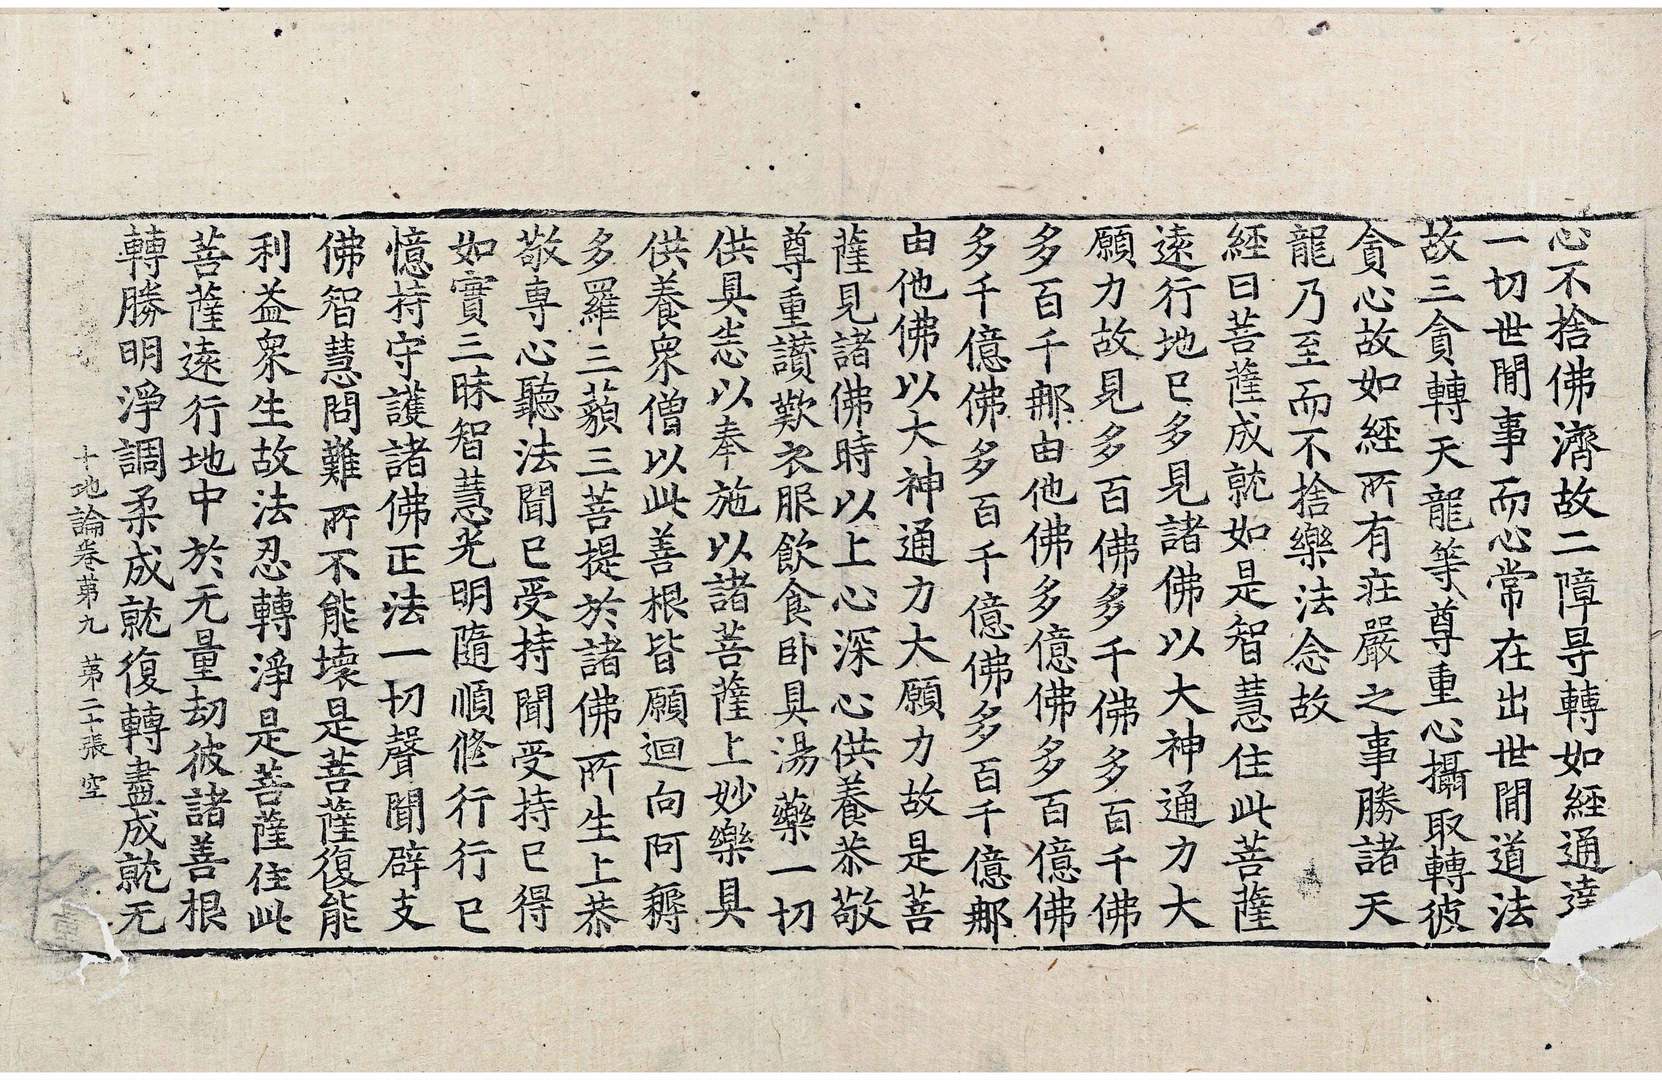 心不捨佛濟故二障㝵轉如經通達
一切世間事而心常在出世間道法
故三貪轉天龍等尊重心攝取轉彼
貪心故如經所有莊嚴之事勝諸天
龍乃至而不捨樂法念故
經曰菩薩成就如是智慧住此菩薩
遠行地已多見諸佛以大神通力大
願力故見多百佛多千佛多百千佛
多百千那由他佛多億佛多百億佛
多千億佛多百千億佛多百千億那
由他佛以大神通力大願力故是菩
薩見諸佛時以上心深心供養恭敬
尊重讚歎衣服飲食卧具湯藥一切
供具悉以奉施以諸菩薩上妙樂具
供養衆僧以此善根皆願迴向阿耨
多羅三藐三菩提於諸佛所生上恭
敬專心聽法聞已受持聞受持已得
如實三昧智慧光明隨順修行行已
憶持守護諸佛正法一切聲聞辟支
佛智慧問難所不能壞是菩薩復能
利益衆生故法忍轉淨是菩薩住此
菩薩遠行地中於无量劫彼諸善根
轉勝明淨調柔成就復轉盡成就无
十地論卷第九　第二十張　空